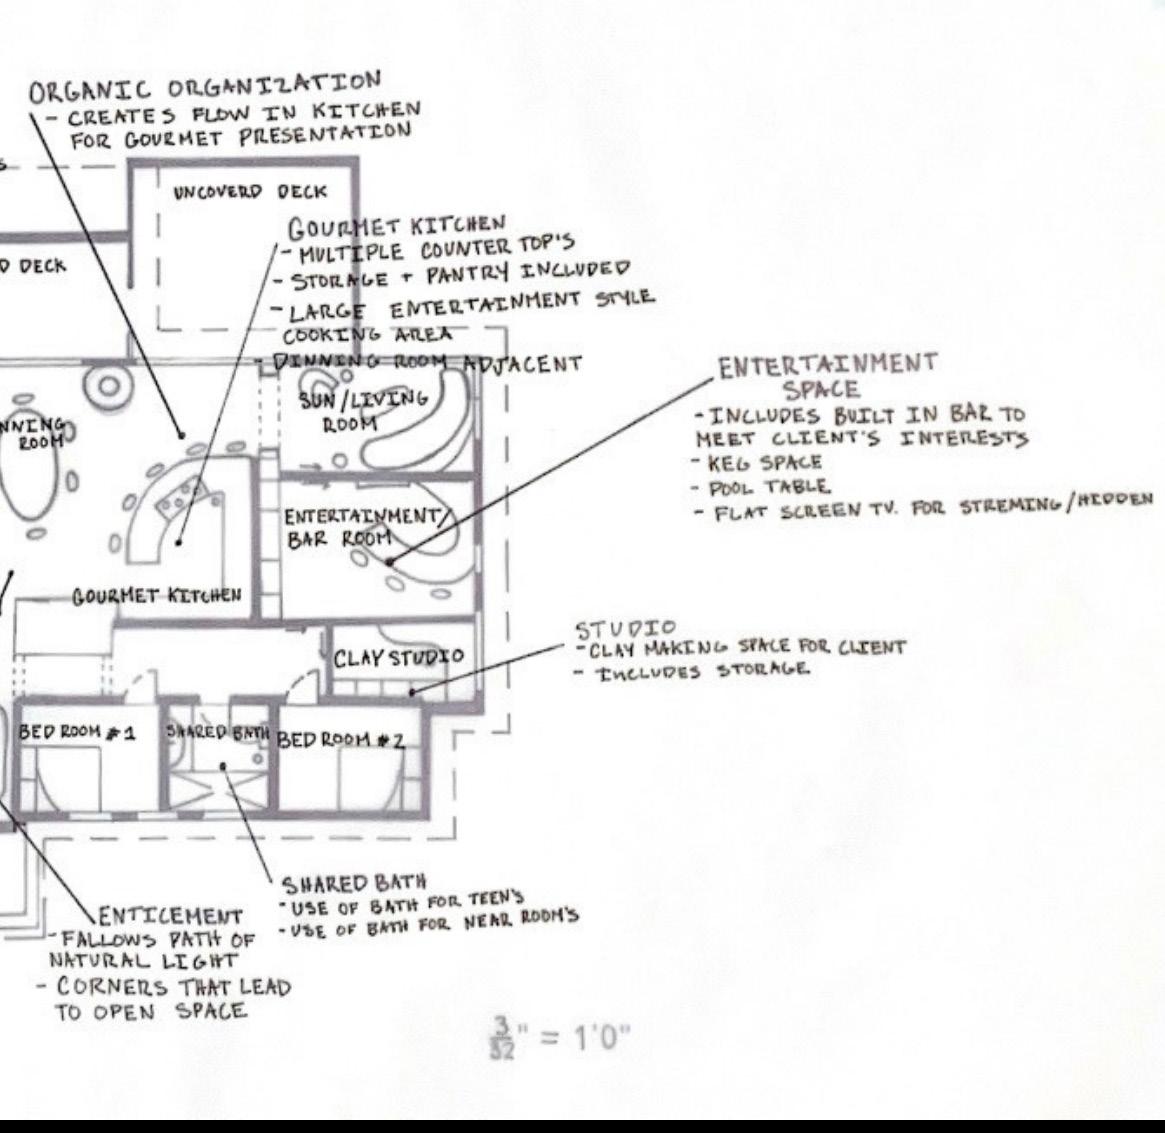 ORGANIC ORGANIZATION
- CREATES FLOW IN KITCHEN
FOR GOURMET PRESENTATION
UNCOVERD DECK
GOURMET KITCHEN
- MULTIPLE COUNTER TOP'S
- STORAGE + PANTRY INCLUDED
- LARGE ENTERTAINMENT STYLE
COOKING AREA
- DINNING ROOM ADJACENT
D DECK
ENTERTAINMENT
SPACE
- INCLUDES BUILT IN BAR TO
MEET CLIENT'S INTERESTS
- KEG SPACE
- POOL TABLE
- FLAT SCREEN TV. FOR STREMING/HIDDEN
SUN/LIVING
ROOM
NNING
ROOM
ENTERTAINMENT/
BAR ROOM
GOURMET KITCHEN
STUDIO
- CLAY MAKING SPACE FOR CLIENT
- INCLUDES STORAGE
CLAY STUDIO
BED ROOM #1
SHARED BATH
BED ROOM #2
SHARED BATH
- USE OF BATH FOR TEEN'S
- USE OF BATH FOR NEAR ROOM'S
ENTICEMENT
- FALLOWS PATH OF
NATURAL LIGHT
- CORNERS THAT LEAD
TO OPEN SPACE
3/32" = 1'0"